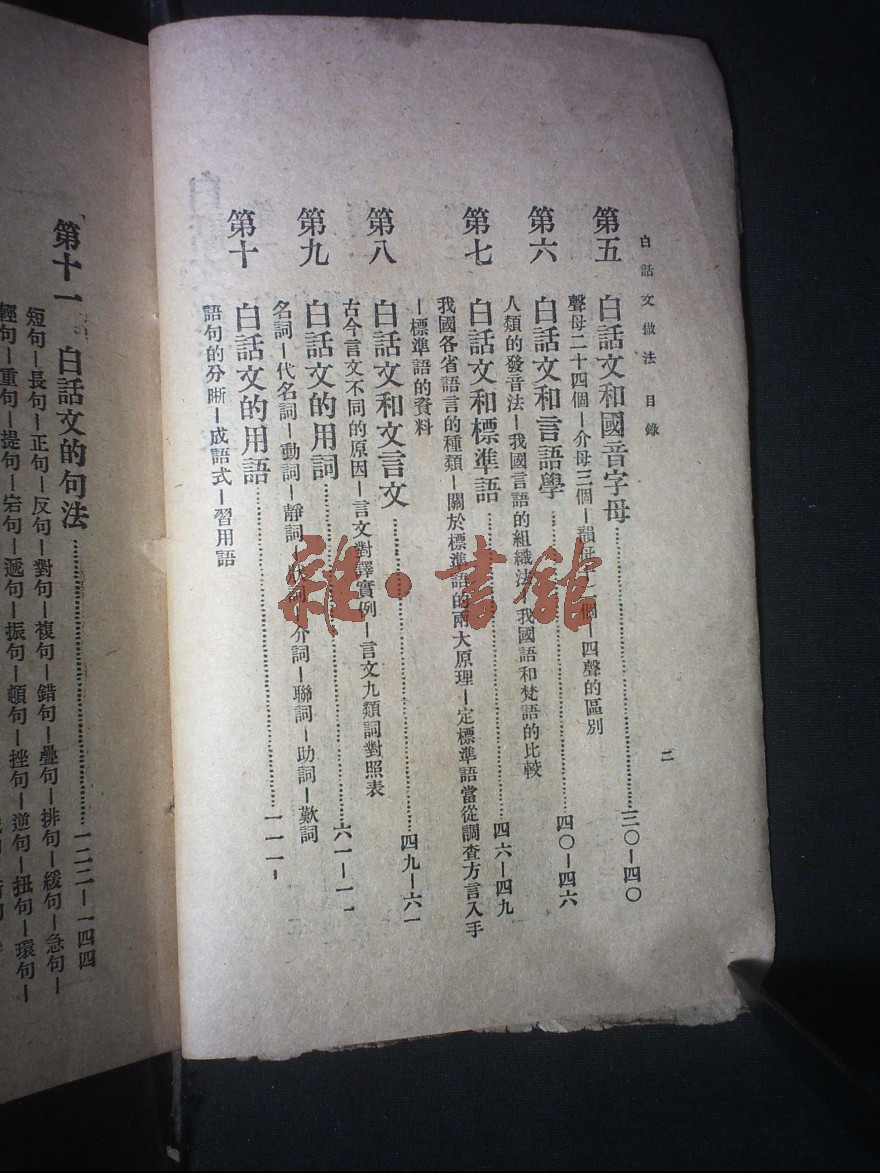 白話文做法 目錄
二
第五 白話文和國音字母……三〇—四〇
聲母二十四個—介母三個—韻母十二個—四聲的區別
第六 白話文和言語學……四〇—四六
人類的發音法—我國言語的組織法 我國語和梵語的比較
第七 白話文和標準語……四六—四九
我國各省語言的種類—關於標準語的兩大原理—定標準語當從調查方言入手
—標準語的資料
第八 白話文和文言文……四九—六一
古今言文不同的原因—言文對譯實例—言文九類詞對照表
第九 白話文的用詞……六一—
名詞—代名詞—動詞—靜詞 介詞—聯詞—助詞—歎詞
第十 白話文的用語……
語句的分晰—成語式—習用語
第十一 白話文的句法……一二二—一四四
短句—長句—正句—反句—對句—複句—錯句—疊句—排句—緩句—急句—
輕句—重句—提句—宕句—遞句—振句—頓句—挫句—逆句—扭句—環句—
雜·書館